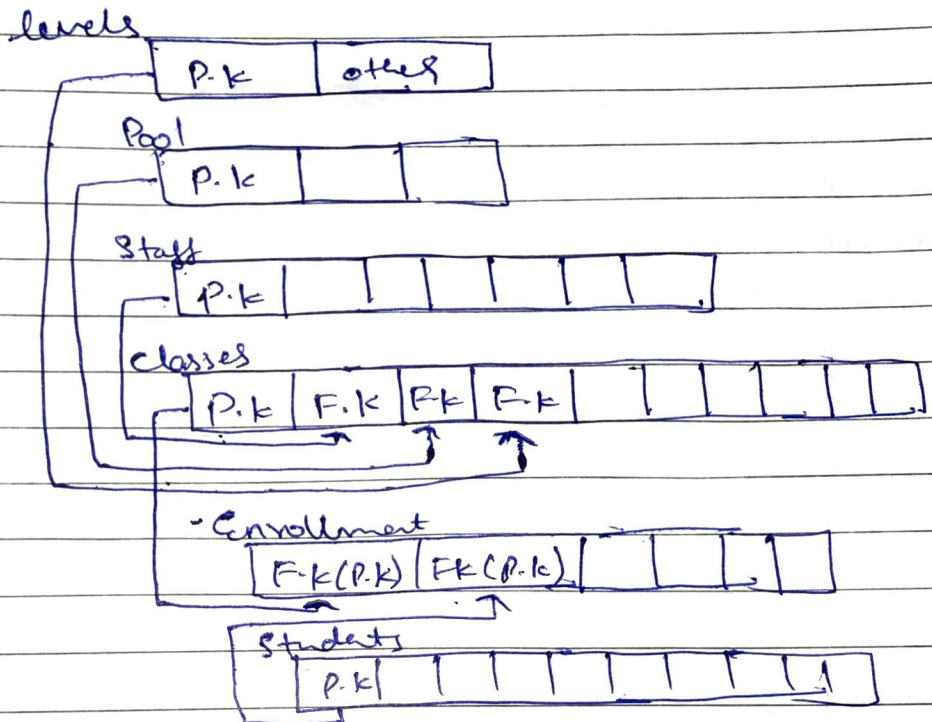 levels
P.k other
Pool
P.k
Staff
P.k
Classes
P.k F.k F.k F.k
Enrollment
F.k(P.k) Fk(P.k)
Students
P.k